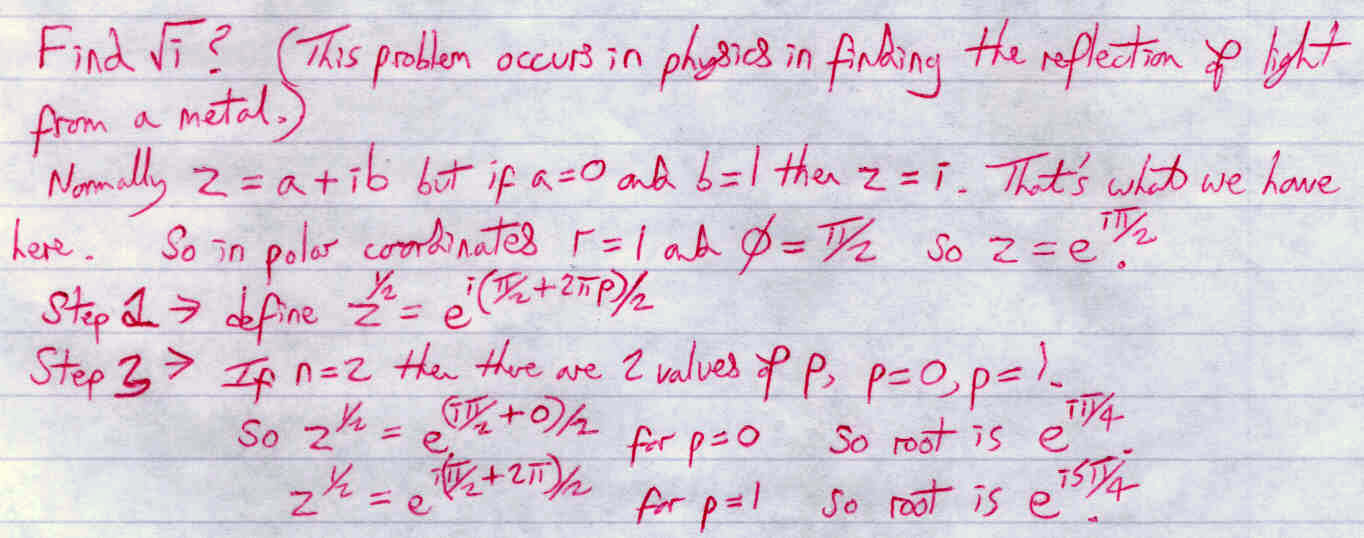 Find √i? (This problem occurs in physics in finding the reflection of light
from a metal.)
Normally z = a + ib but if a=0 and b=1 then z = i. That's what we have
here. So in polar coordinates r = 1 and ϕ = π/2 so z = e^{iπ/2}.
Step 2 → define z^{1/2} = e^{i(π/2+2πp)/2}
Step 3 → If n=2 then there are 2 values of p, p=0, p=1.
So z^{1/2} = e^{(iπ/2+0)/2} for p=0 So root is e^{iπ/4}.
z^{1/2} = e^{i(π/2+2π)/2} for p=1 so root is e^{i5π/4}.